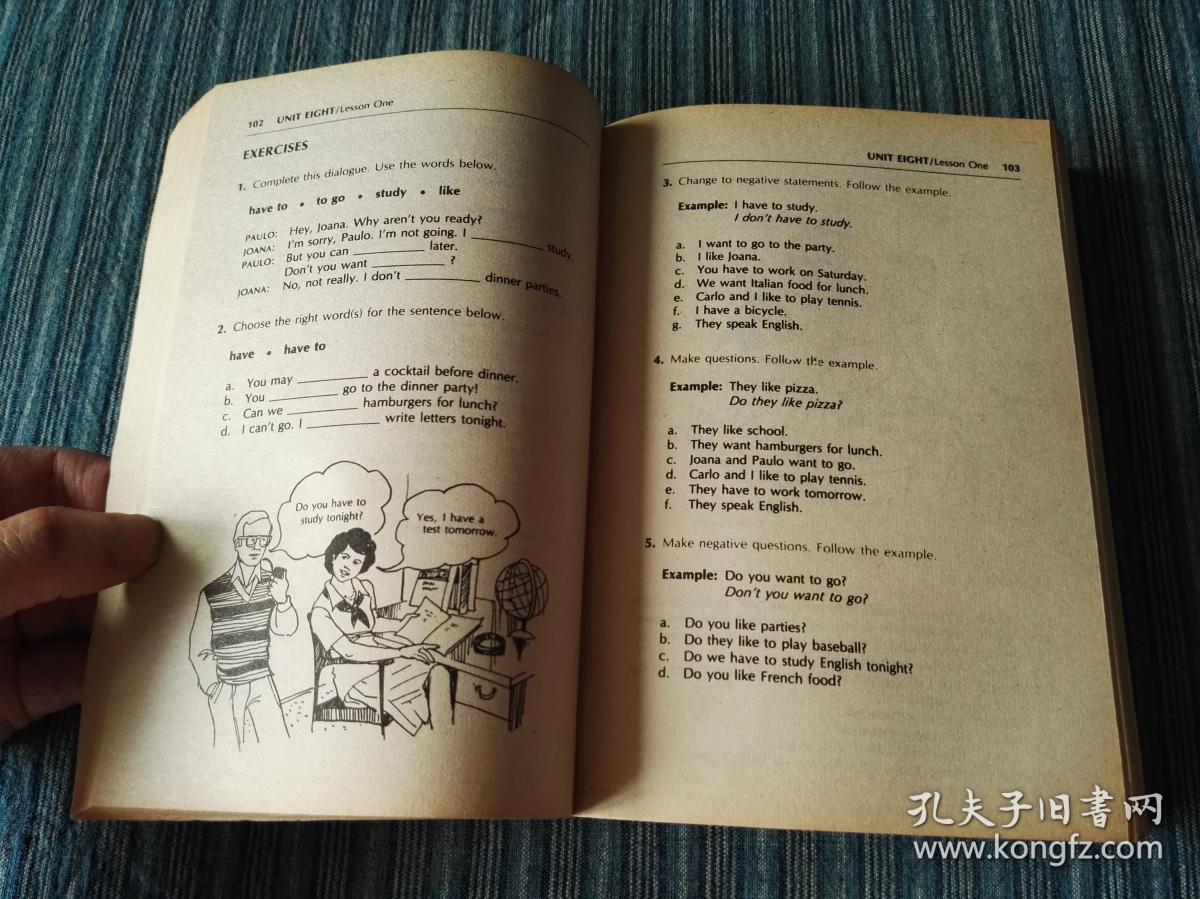 102 UNIT EIGHT/Lesson One
EXERCISES
1. Complete this dialogue. Use the words below.
have to • to go • study • like
PAULO: Hey, Joana. Why aren't you ready?
JOANA: I'm sorry, Paulo. I'm not going. I __________ study.
PAULO: But you can __________ later.
Don't you want __________ ?
JOANA: No, not really. I don't __________ dinner parties.
2. Choose the right word(s) for the sentence below.
have • have to
a. You may __________ a cocktail before dinner.
b. You __________ go to the dinner party!
c. Can we __________ hamburgers for lunch?
d. I can't go. I __________ write letters tonight.
Do you have to
study tonight?
Yes, I have a
test tomorrow.
UNIT EIGHT/Lesson One 103
3. Change to negative statements. Follow the example.
Example: I have to study.
I don't have to study.
a. I want to go to the party.
b. I like Joana.
c. You have to work on Saturday.
d. We want Italian food for lunch.
e. Carlo and I like to play tennis.
f. I have a bicycle.
g. They speak English.
4. Make questions. Follow the example.
Example: They like pizza.
Do they like pizza?
a. They like school.
b. They want hamburgers for lunch.
c. Joana and Paulo want to go.
d. Carlo and I like to play tennis.
e. They have to work tomorrow.
f. They speak English.
5. Make negative questions. Follow the example.
Example: Do you want to go?
Don't you want to go?
a. Do you like parties?
b. Do they like to play baseball?
c. Do we have to study English tonight?
d. Do you like French food?
孔夫子旧書网
www.kongfz.com